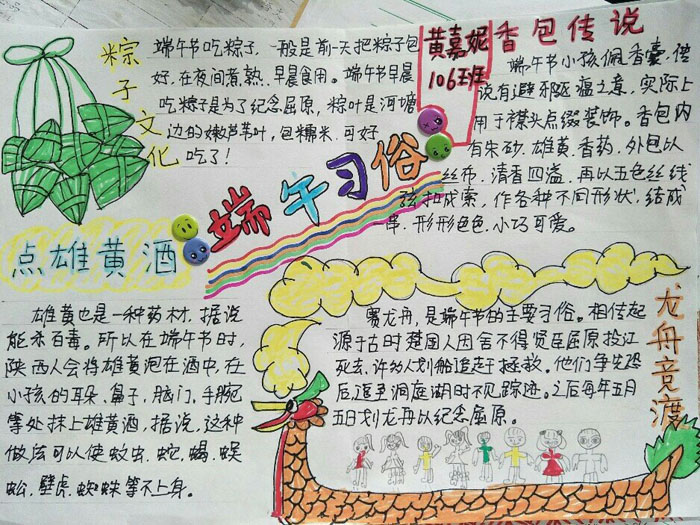 粽子文化
端午节吃粽子,一般是前一天把粽子包
好,在夜间煮熟、早晨食用。端午节早晨
吃粽子是为了纪念屈原,粽叶是河塘
边的嫩芦苇叶,包糯米、可好
吃了!
黄嘉妮
106班
香包传说
端午节小孩佩香囊,传
说有避邪驱瘟之意,实际上
用于襟头点缀装饰。香包内
有朱砂、雄黄、香药,外包以
丝布,清香四溢,再以五色丝线
弦扣成索,作各种不同形状,结成
串,形形色色,小巧可爱。
端午习俗
点雄黄酒
雄黄也是一种药材,据说
能杀百毒。所以在端午节时,
陕西人会将雄黄泡在酒中,在
小孩的耳朵、鼻子、脑门、手腕
等处抹上雄黄酒,据说,这种
做法可以使蚊虫、蛇、蝎、蜈
蚣、壁虎、蜘蛛等不上身。
龙舟竞渡
赛龙舟,是端午节的主要习俗。相传起
源于古时楚国人因舍不得贤臣屈原投江
死去,许多人划船追赶拯救。他们争先恐
后,追至洞庭湖时不见踪迹。之后每年五月
五日划龙舟以纪念屈原。